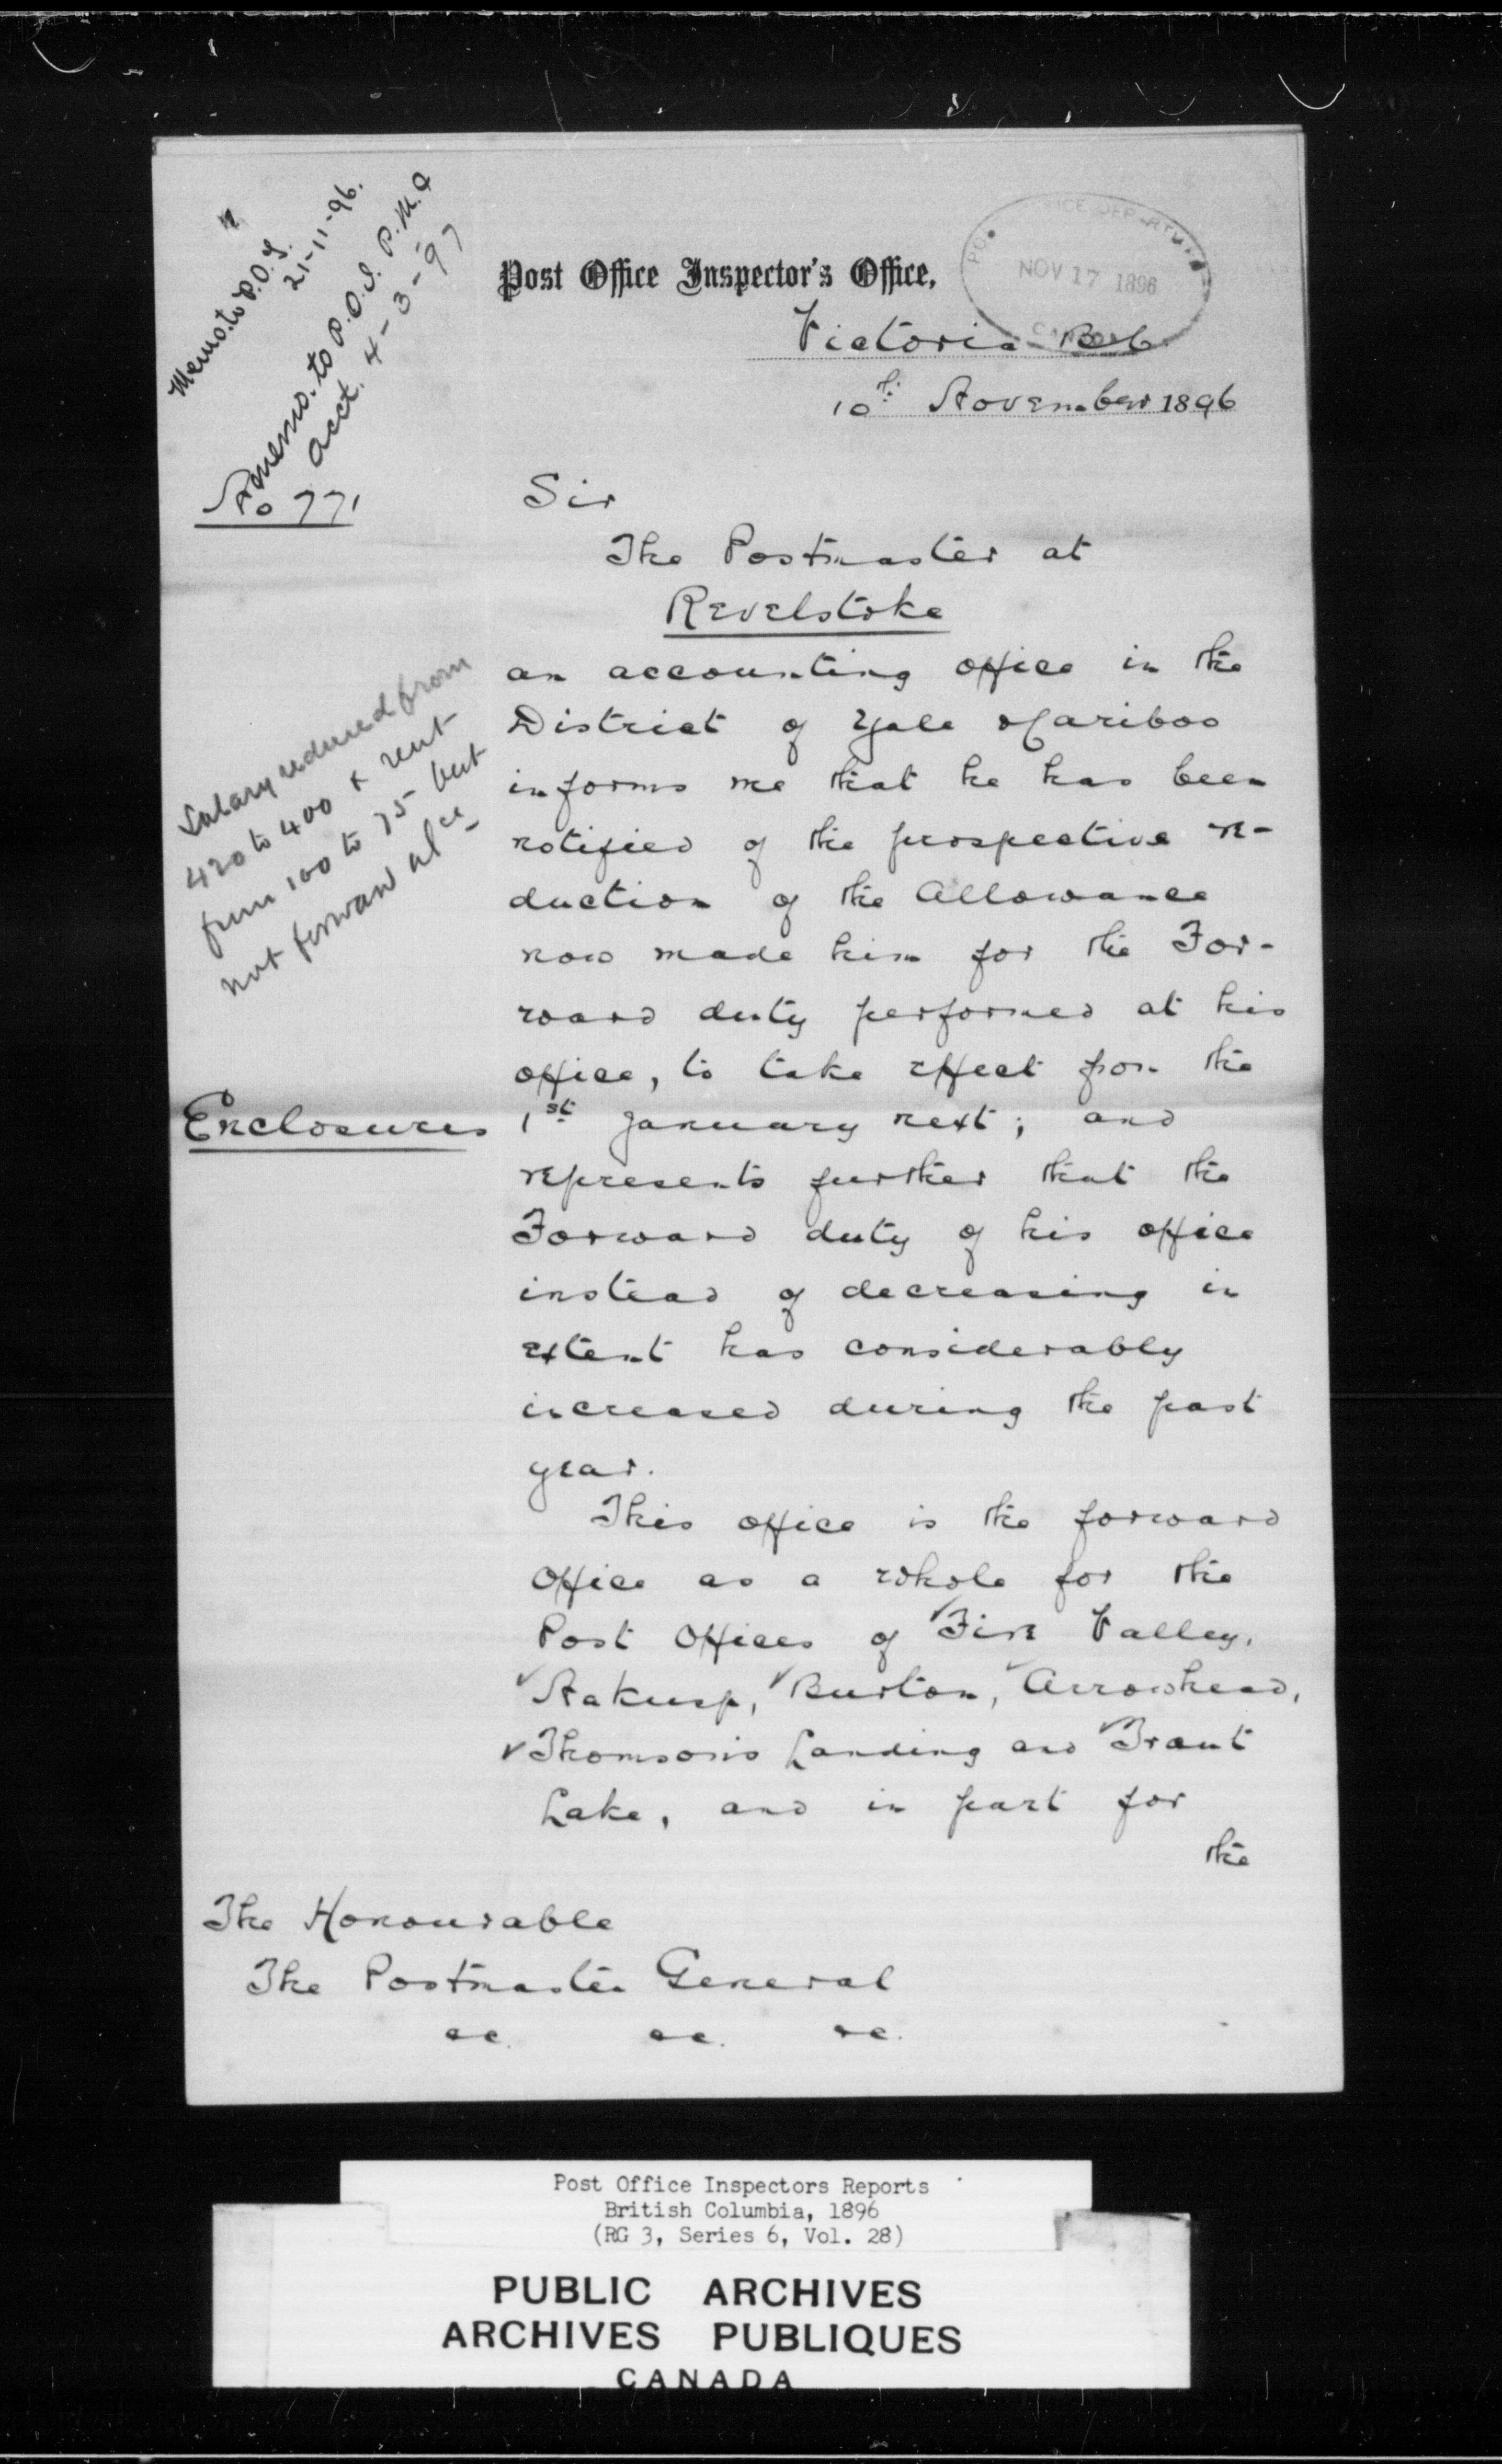 Memo. to P.O.I.
21-11-96.
Memo. to P.O.I. P.M. &
acct. 4-3-97
No 771
Post Office Inspector's Office,
NOV 17 1896
CANADA
Victoria B C
10th November 1896
Sir
The Postmaster at
Revelstoke
an accounting office in the
District of Yale & Cariboo
informs me that he has been
notified of the prospective re-
duction of the Allowance
now made him for the For-
ward duty performed at his
office, to take effect from the
1st January next; and
represents further that the
Forward duty of his office
instead of decreasing in
extent has considerably
increased during the past
year.
Salary reduced from
420 to 400 & rent
from 100 to 75 but
not forward alce
Enclosures
This office is the forward
Office as a whole for the
Post Offices of Fire Valley,
Nakusp, Burton, Arrowhead,
Thomson's Landing and Trout
Lake, and in part for
the
The Honourable
The Postmaster General
&c. &c. &c.
Post Office Inspectors Reports
British Columbia, 1896
(RG 3, Series 6, Vol. 28)
PUBLIC ARCHIVES
ARCHIVES PUBLIQUES
CANADA